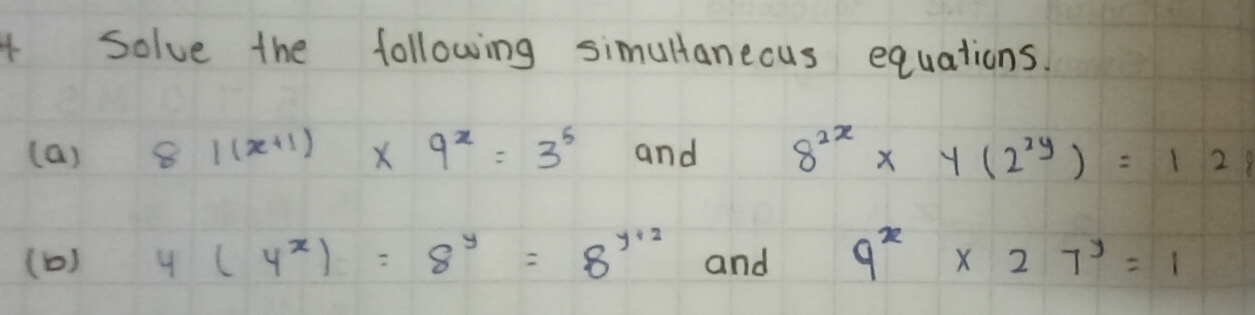 4 Solve the following simultaneous equations.
(a) 81^(x+1) × 9^x = 3^5 and 8^2x × 4(2^2y) = 12
(b) 4(4^x) = 8^y = 8^y+2 and 9^x × 27^y = 1